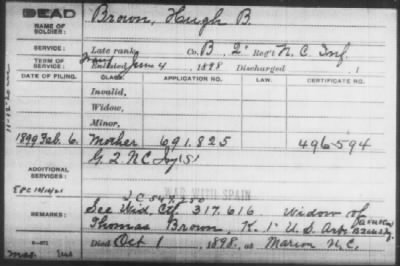 DEAD
NAME OF SOLDIER:
Brown, Hugh B.
SERVICE:
Late rank, Co. B 2" Reg't N.C. Inf.
TERM OF SERVICE:
Enlisted June 4, 1898 Discharged , 1
DATE OF FILING.
CLASS.
APPLICATION NO.
LAW.
CERTIFICATE NO.
Invalid,
Widow,
Minor,
1899 Feb. 6. Mother 691.825 496-594
G 2 N C Inf
ADDITIONAL SERVICES:
WAR WITH SPAIN
REMARKS:
See Wid. Ctf. 317.616. Widow of
Thomas Brown, K. 1" U.S. Art.
Died Oct 1, 1898, at Marion N.C.